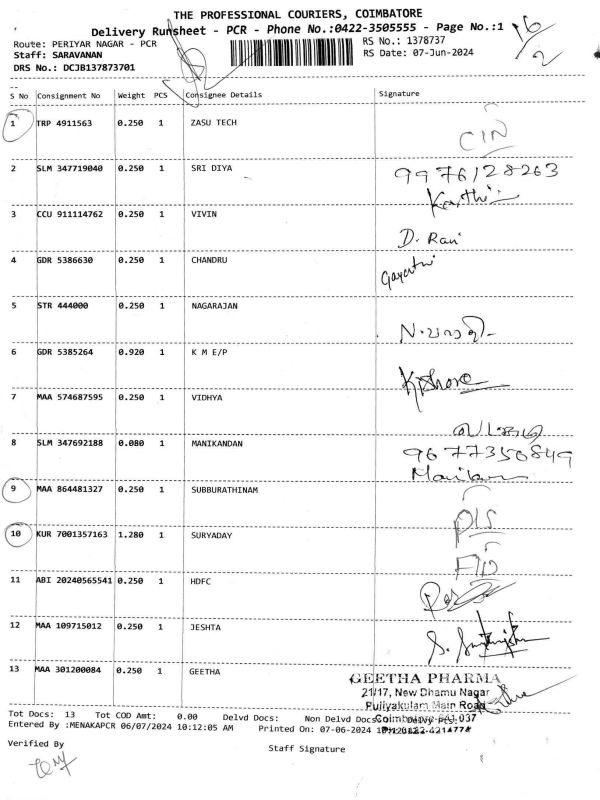 THE PROFESSIONAL COURIERS, COIMBATORE
Delivery Runsheet - PCR - Phone No.:0422-3505555 - Page No.:1
16/2
Route: PERIYAR NAGAR - PCR
RS No.: 1378737
Staff: SARAVANAN
RS Date: 07-Jun-2024
DRS No.: DCJB137873701
S No Consignment No Weight PCS Consignee Details Signature
1 TRP 4911563 0.250 1 ZASU TECH
CIN
2 SLM 347719040 0.250 1 SRI DIYA 9976128263
Karthi
3 CCU 911114762 0.250 1 VIVIN
D. Rani
4 GDR 5386630 0.250 1 CHANDRU
Gayathri
5 STR 444000 0.250 1 NAGARAJAN
6 GDR 5385264 0.920 1 K M E/P
Kishore
7 MAA 574687595 0.250 1 VIDHYA
8 SLM 347692188 0.080 1 MANIKANDAN 9677350849
9 MAA 864481327 0.250 1 SUBBURATHINAM
D/S
10 KUR 7001357163 1.280 1 SURYADAY
11 ABI 20240565541 0.250 1 HDFC
12 MAA 109715012 0.250 1 JESHTA
13 MAA 301200084 0.250 1 GEETHA
GEETHA PHARMA
21/17, New Dhamu Nagar
Puliyakulam Main Road
Coimbatore-641 037
Tot Docs: 13 Tot COD Amt: 0.00 Delvd Docs: Non Delvd Docs: Delvy Pts:
Entered By :MENAKAPCR 06/07/2024 10:12:05 AM Printed On: 07-06-2024
Verified By
Staff Signature